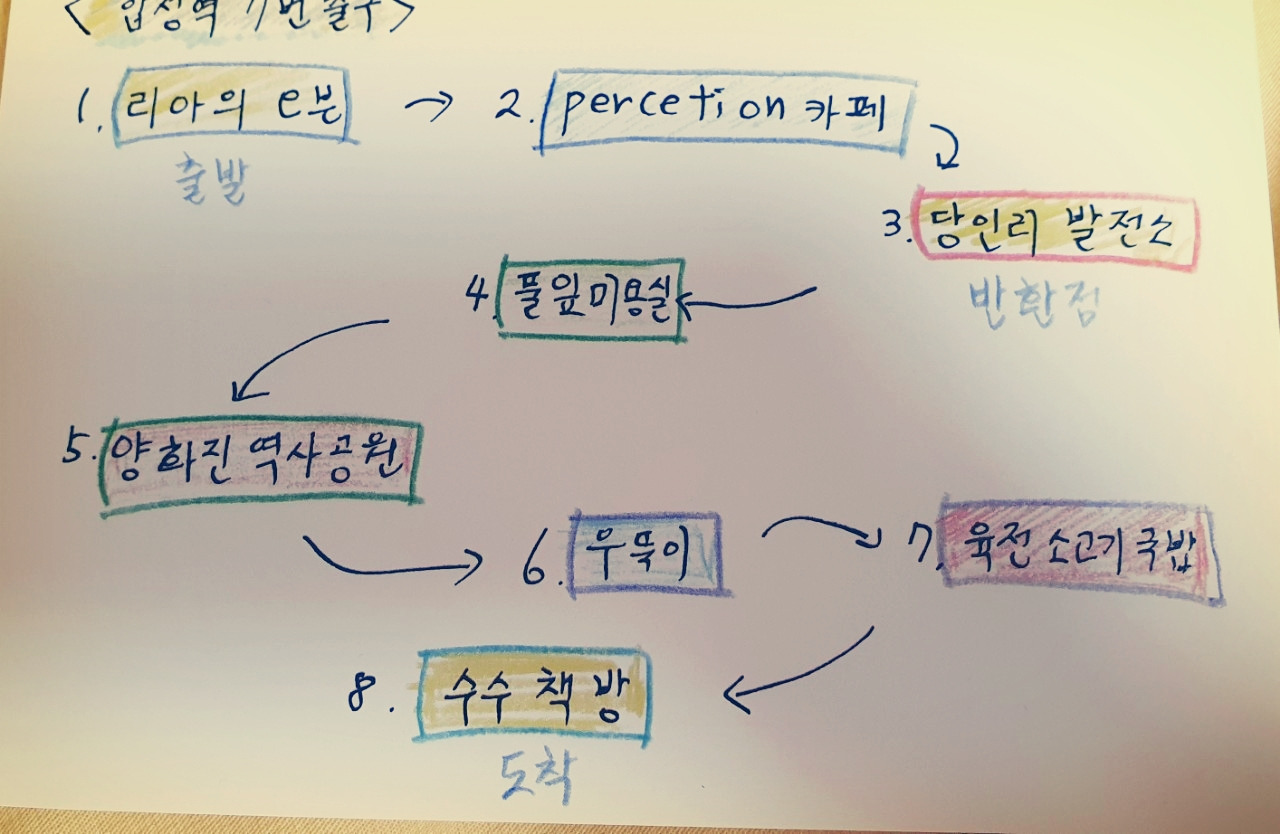 <합정역 7번 출구>
1. 리아의 e분 → 2. percetion 카페
출발
3. 당인리 발전소
반환점
4. 풀잎미용실
5. 양화진 역사공원
6. 우뚝이
7. 육전 소고기 국밥
8. 수수 책방
도착